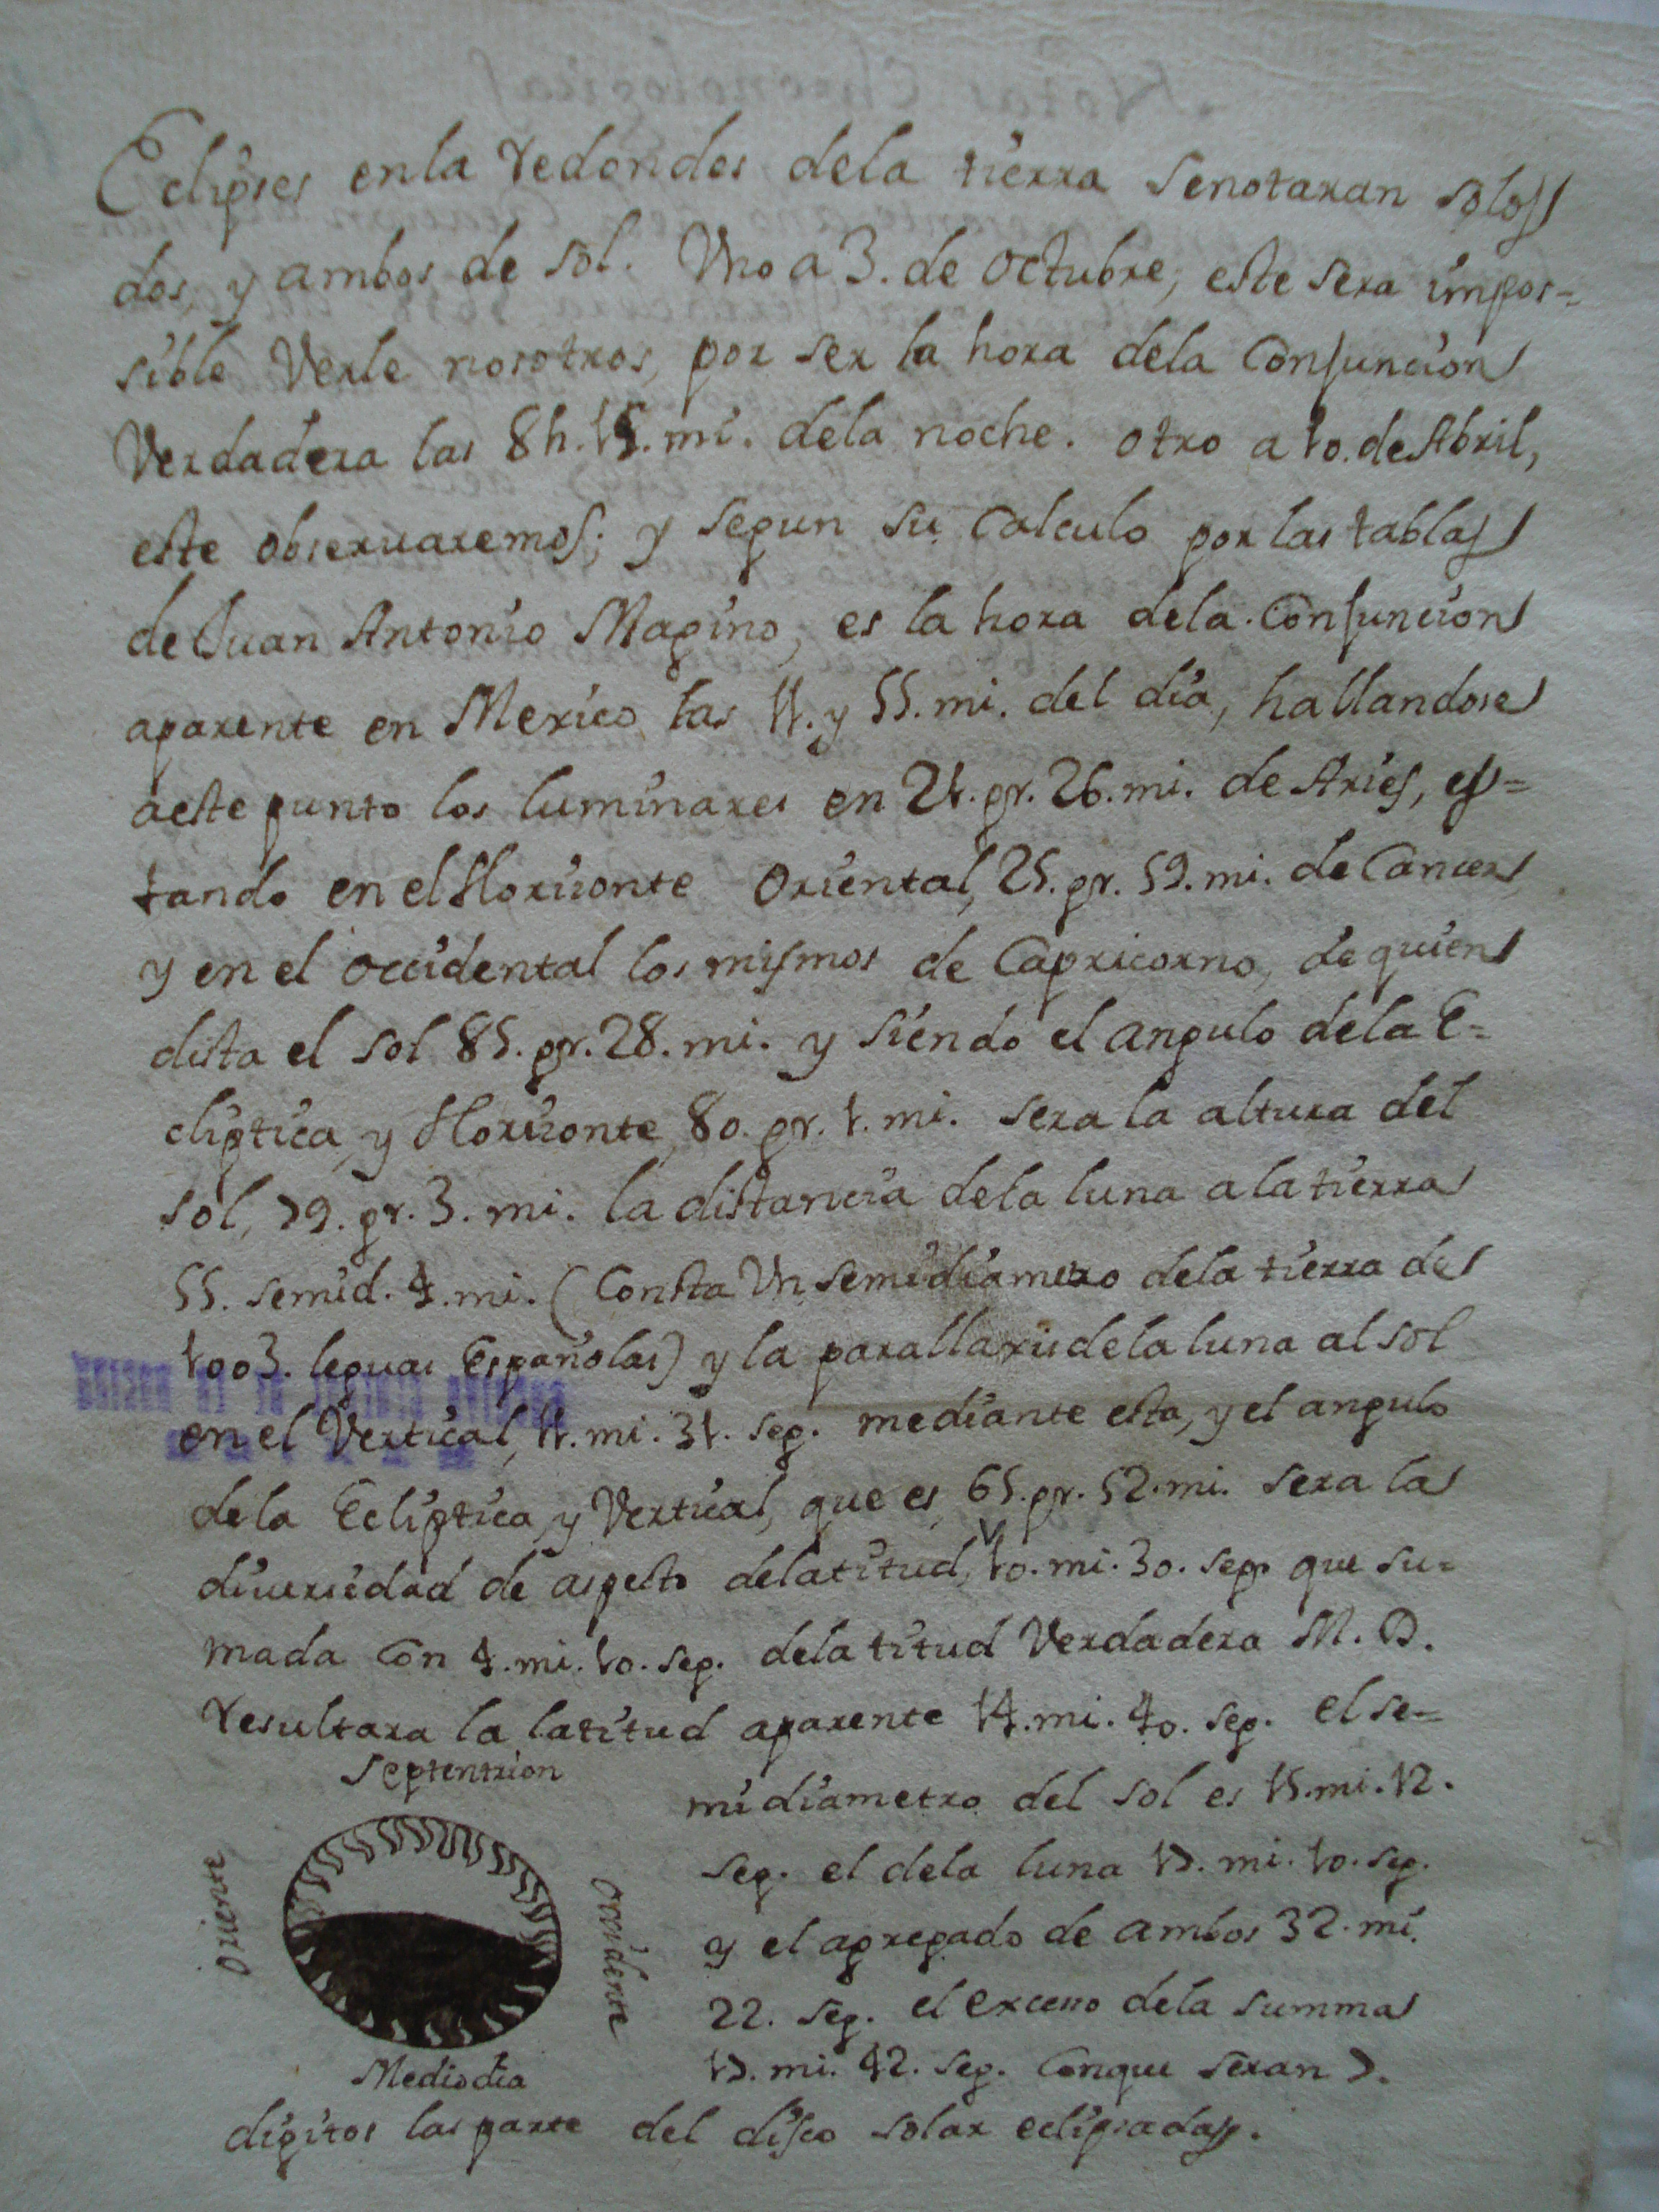 Eclipses enla redondes dela tierra senotaran solos
dos, y ambos de sol. Uno a 3. de octubre, este sera impos=
sible verle nosotros, por ser la hora dela Conjuncion
Verdadera las 8h.15.mi. dela noche. otro a 10. de Abril,
este obseruaremos; y segun su Calculo por las tablas
de Juan Antonio Magino, es la hora dela Conjuncion
aparente en Mexico las 11. y 55. mi. del dia, hallandose
aeste punto los luminares en 21. gr. 26. mi. de Aries, es=
tando en el Horizonte Oriental, 25. gr. 59. mi. de Cancer
y en el occidental los mismos de Capricorno, de quien
dista el sol 85. gr. 28. mi. y siendo el angulo dela E=
cliptica, y Horizonte, 80. gr. 1. mi. sera la altura del
sol, 79. gr. 3. mi. la distancia dela luna a la tierra
55. semid. 4. mi. (Consta Un semidiametro dela tierra de
1003. leguas Españolas) y la parallaxis dela luna al sol
en el Vertical, 11. mi. 31. seg. mediante esta, y el angulo
dela Ecliptica, y Vertical, que es, 65. gr. 52. mi. sera la
diuersidad de aspecto delatitud, 10. mi. 30. seg. que su=
mada Con 4. mi. 10. seg. dela titud Verdadera M. D.
resultara la latitud aparente 14. mi. 40. seg. el se=
Septentrion
midiametro del sol es 15. mi. 12.
seg. el dela luna 17. mi. 10. seg.
Oriente
Occidente
y el agregado de ambos 32. mi.
22. seg. el exceso dela summa
Mediodia
17. mi. 42. seg. Conque seran 7.
digitos las parte del disco solar eclipsadas.